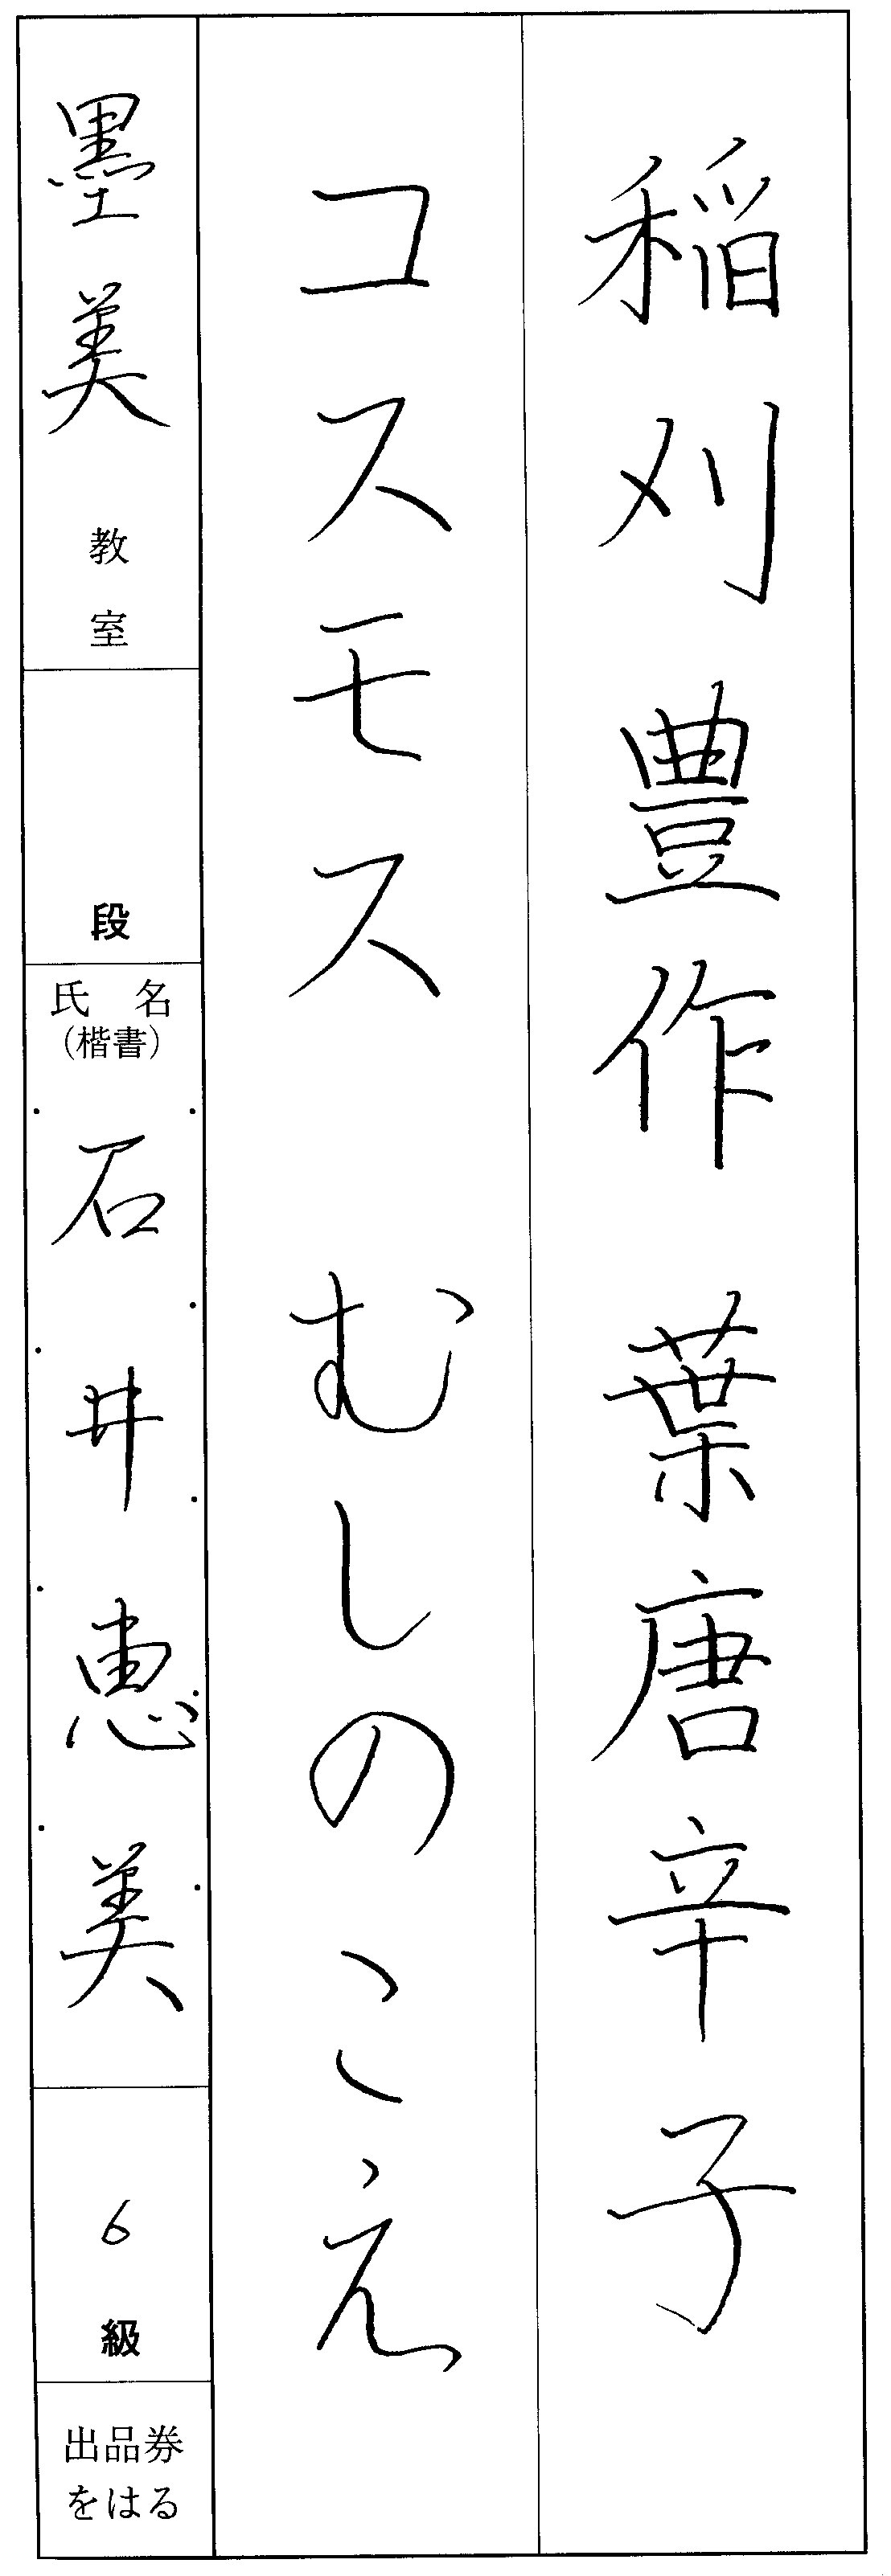 稲刈豊作 葉唐辛子
コスモス むしのこえ
墨美教室
段
氏名
(楷書)
石井恵美
6級
出品券
をはる